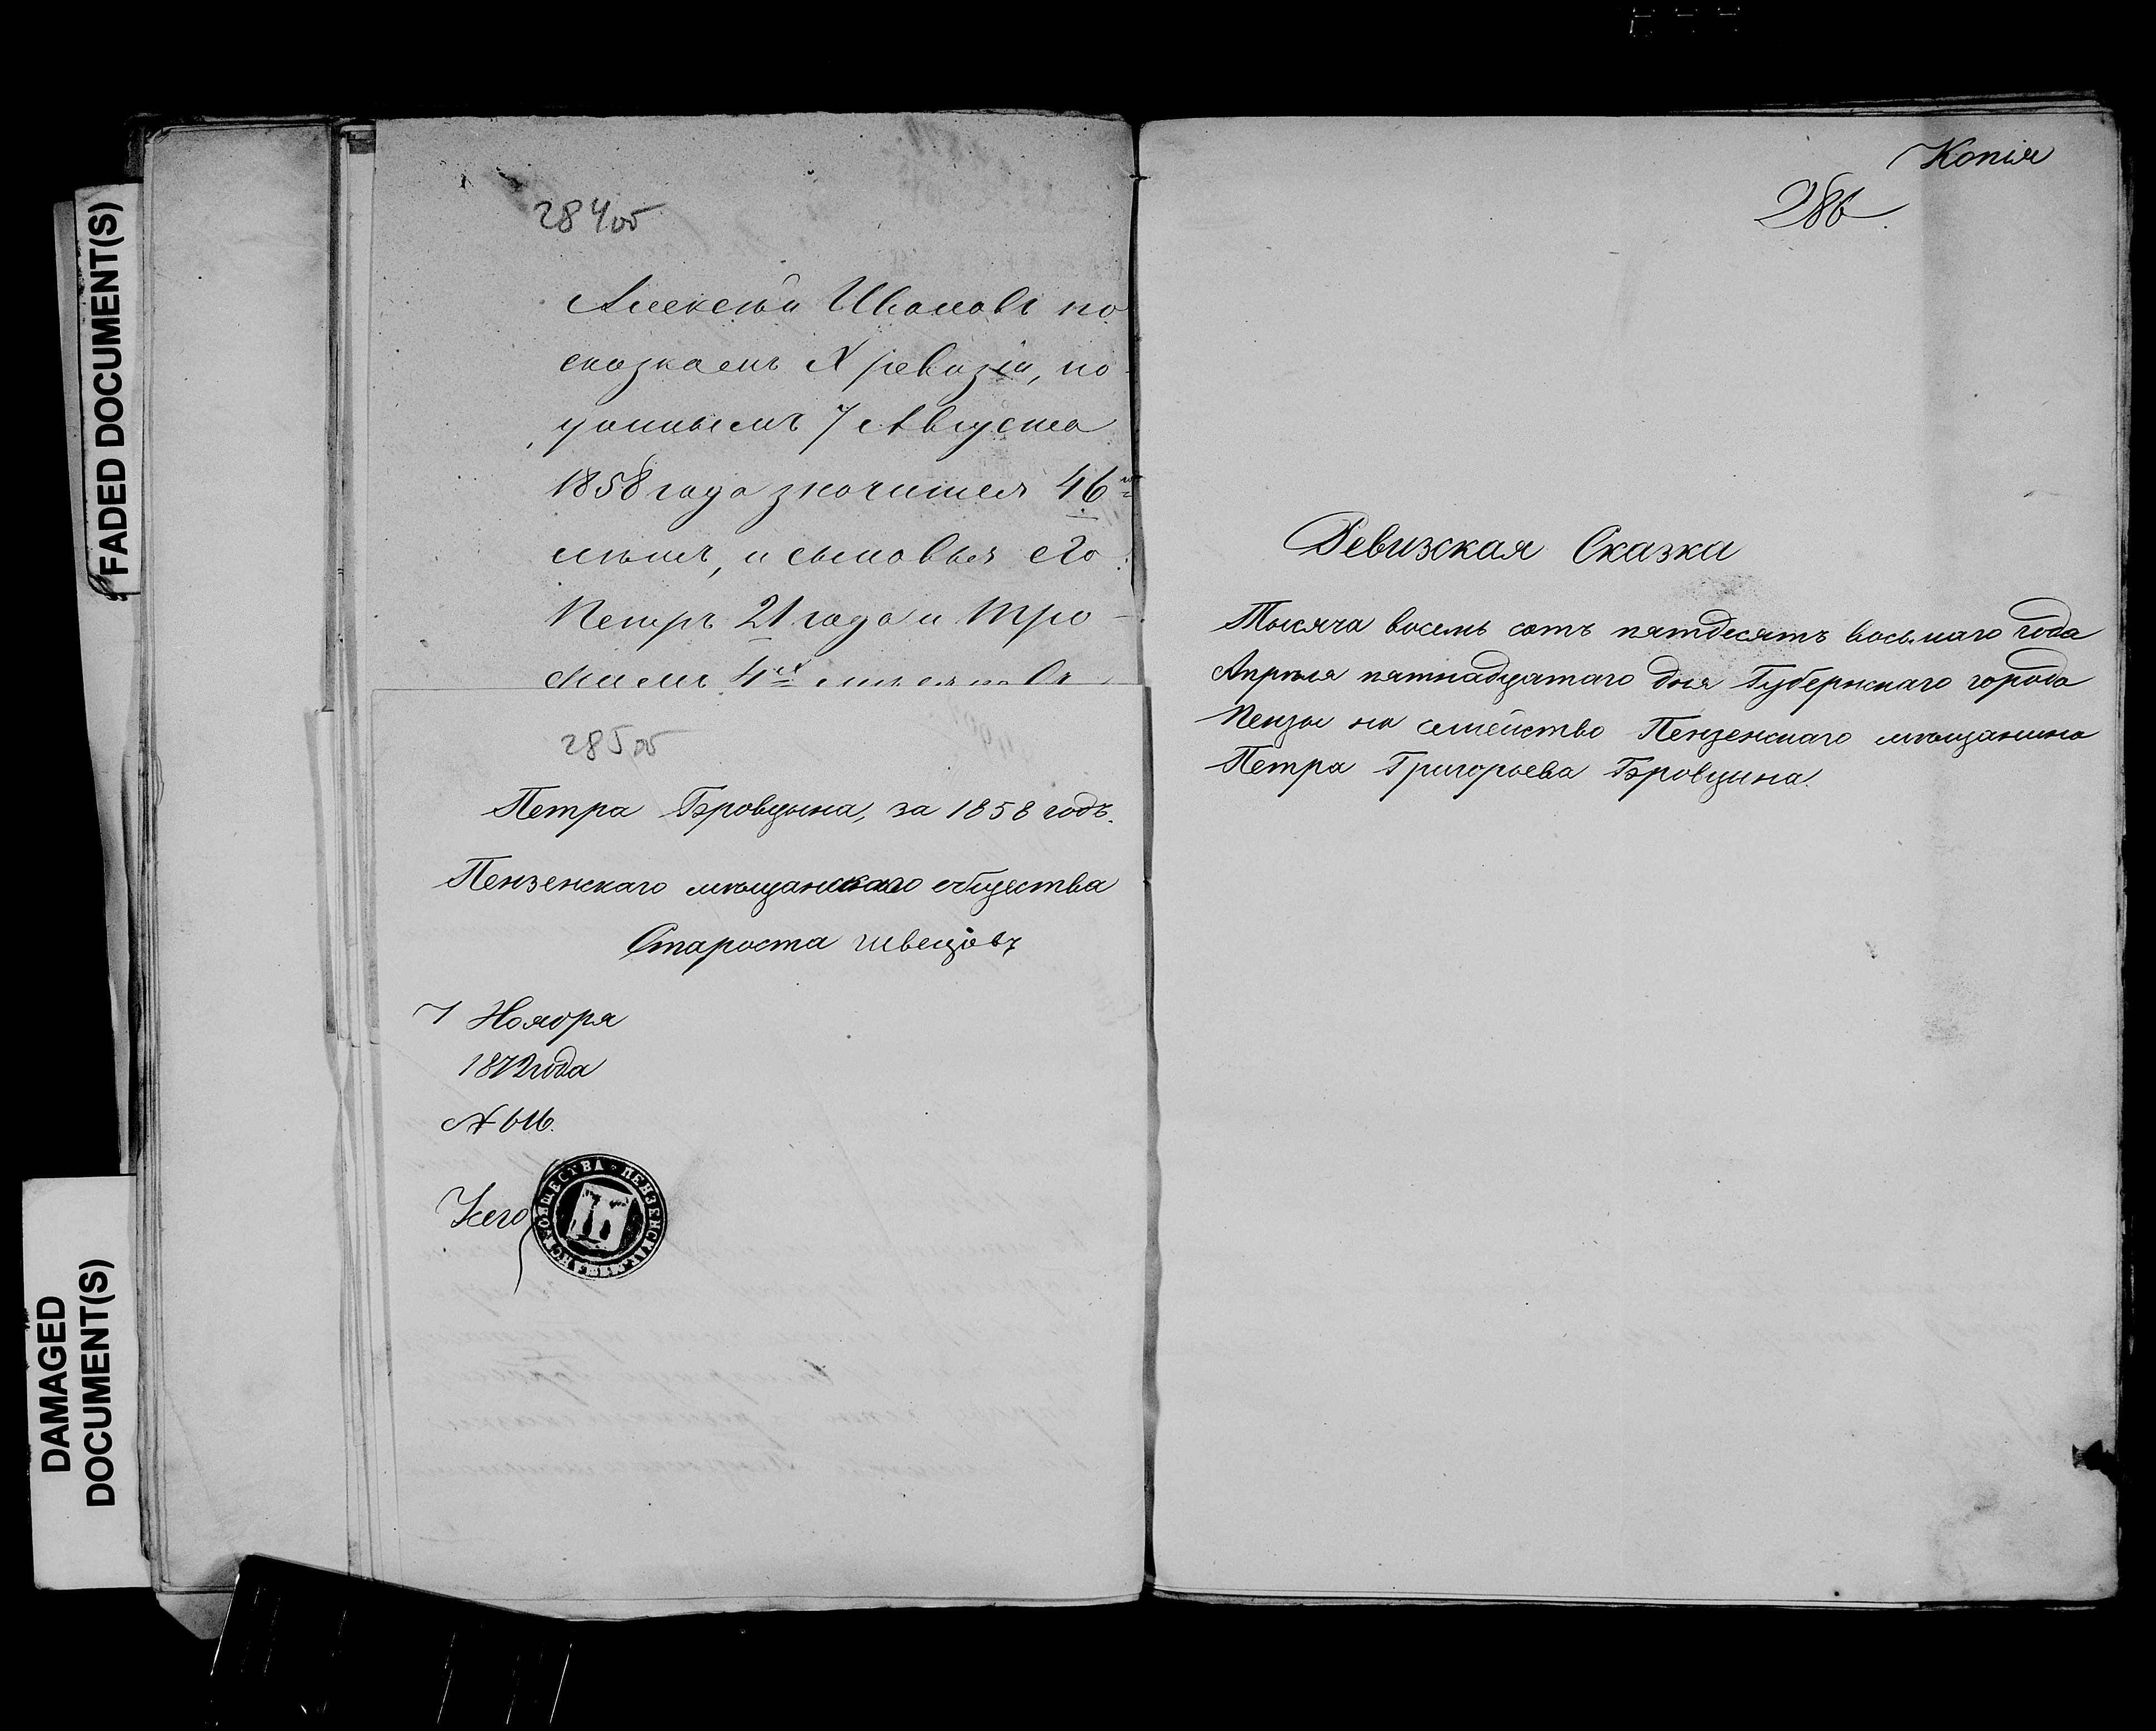 FADED DOCUMENT(S)
DAMAGED
DOCUMENT(S)
284об
Алексѣй Ивановъ по
сказкамъ X ревизіи, по-
даннымъ 7 Августа
1858 года значится 46
лѣтъ, и сыновья его:
Петръ 21 года и Тро-
285об
Петра Бровцына, за 1858 годъ.
Пензенскаго мѣщанскаго общества
Староста Швецовъ
7 Ноября
1872 года
№ 616.
ПЕНЗЕНСКАГ. МѢЩАНСК. ОБЩЕСТВА
Копія
286
Ревизская Сказка
Тысяча восемь сотъ пятдесятъ восьмаго года
Апрѣля пятнадцатаго дня Губернскаго города
Пензы на семейство Пензенскаго мѣщанина
Петра Григорьева Бровцина.